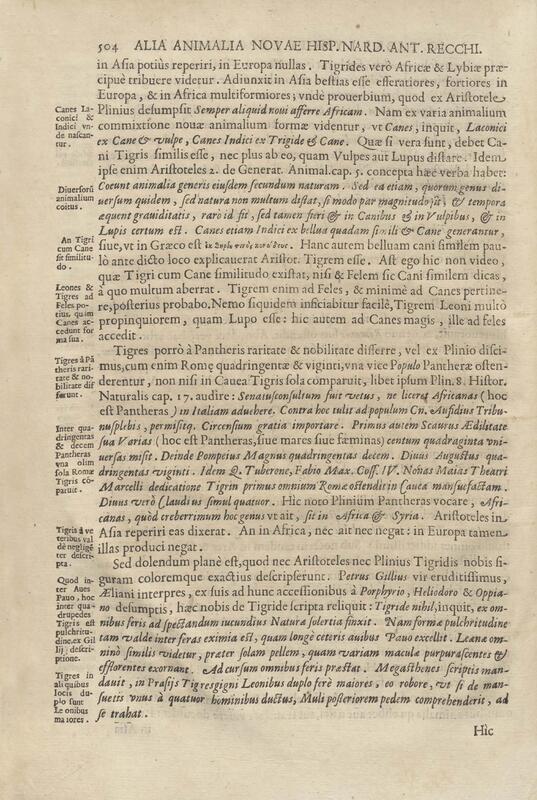 504 ALIA ANIMALIA NOVAE HISP. NARD. ANT. RECCHI.
in Asia potiùs reperiri, in Europa nullas. Tigrides verò Africæ & Lybiæ præ-
cipuè tribuere videtur. Adiunxit in Asia bestias esse efferatiores, fortiores in
Europa, & in Africa multiformiores; vndè prouerbium, quod ex Aristotele
Plinius desumpsit Semper aliquid noui afferre Africam. Nam ex varia animalium
commixtione nouæ animalium formæ videntur, vt Canes, inquit, Laconici
ex Cane & vulpe, Canes Indici ex Trigide & Cane. Quæ si vera sunt, debet Ca-
ni Tigris similis esse, nec plus ab eo, quam Vulpes aut Lupus distare. Idem
ipse enim Aristoteles 2. de Generat. Animal. cap. 5. concepta hæc verba habet:
Coeunt animalia generis eiusdem secundum naturam. Sed ea etiam, quorum genus di-
uersum quidem, sed natura non multum distat, si modo par magnitudo sit, & tempora
æquent grauiditatis, rarò id fit, sed tamen fieri & in Canibus & in Vulpibus, & in
Lupis certum est. Canes etiam Indici ex bellua quadam simili & Cane generantur,
siue, vt in Græco est Hanc autem belluam cani similem pau-
lò ante dicto loco explicauerat Aristot. Tigrem esse. Ast ego hic non video,
quæ Tigri cum Cane similitudo existat, nisi & Felem sic Cani similem dicas,
à quo multum aberrat. Tigrem enim ad Feles, & minimè ad Canes pertine-
re, posterius probabo. Nemo siquidem inficiabitur facilè, Tigrem Leoni multò
propinquiorem, quam Lupo esse: hic autem ad Canes magis, ille ad feles
accedit.
Tigres porrò à Pantheris raritate & nobilitate differre, vel ex Plinio disci-
mus, cum enim Rome quadringentæ & viginti, vna vice Populo Pantheræ osten-
derentur, non nisi in Cauea Tigris sola comparuit, libet ipsum Plin. 8. Histor.
Naturalis cap. 17. audire: Senatusconsultum fuit vetus, ne liceret Africanas (hoc
est Pantheras) in Italiam aduehere. Contra hoc tulit ad populum Cn. Aufidius Tribu-
nusplebis, permisitq. Circensium gratia importare. Primus autem Scaurus Ædilitate
sua Varias (hoc est Pantheras, siue mares siue fæminas) centum quadraginta vni-
uersas misit. Deinde Pompeius Magnus quadringentas decem. Diuus Augustus qua-
dringentas viginti. Idem Q. Tuberone, Fabio Max. Coss. IV. Nonas Maias Theatri
Marcelli dedicatione Tigrin primus omnium Romæ ostendit in Cauea mansuefactam.
Diuus verò Claudius simul quatuor. Hic noto Plinium Pantheras vocare, Afri-
canas, quòd creberrimum hoc genus vt ait, sit in Africa & Syria. Aristoteles in
Asia reperiri eas dixerat. An in Africa, nec ait nec negat: in Europa tamen
illas produci negat.
Sed dolendum planè est, quod nec Aristoteles nec Plinius Tigridis nobis fi-
guram coloremque exactius descripserunt. Petrus Gillius vir eruditissimus,
Æliani interpres, ex suis ad hunc accessionibus à Porphyrio, Heliodoro & Oppia-
no desumptis, hæc nobis de Tigride scripta reliquit: Tigride nihil, inquit, ex om-
nibus feris ad spectandum iucundius Natura solertia finxit. Nam formæ pulchritudine
tam valde inter feras eximia est, quam longè ceteris auibus Pauo excellit. Leænæ om-
ninò similis videtur, præter solam pellem, quam variam maculæ purpurascentes &
efflorentes exornant. Ad cursum omnibus feris præstat. Megasthenes scriptis man-
dauit, in Prasijs Tigres gigni Leonibus duplo ferè maiores, eo robore, vt si de man-
suetis vnus à quatuor hominibus ductus, Muli posteriorem pedem comprehenderit, ad
se trahat.
Hìc
Canes La-
conici &
Indici vn-
de nascan-
tur.
Diuersorũ
animalium
coitus.
An Tigri
cum Cane
sit similitu-
do.
Leones &
Tigres ad
Feles po-
tius, quàm
Canes ac-
cedunt for
ma sua.
Tigres à Pã
theris rari-
tate & no-
bilitate dif
ferunt.
Inter qua-
dringentas
& decem
Pantheras
vna olim
sola Romæ
Tigris cõ-
paruit.
Tigris à ve
teribus val
dè neglige
ter descri-
pta.
Quod in-
ter Aues
Pauo, hoc
inter qua-
drupedes
Tigris est
pulchritu-
dine, ex Gil
lij descri-
ptione.
Tigres in
aliquibus
locis du-
plo sunt
Leonibus
maiores.